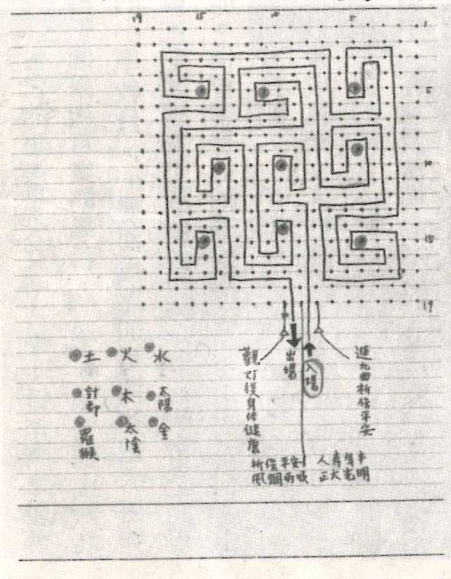 19 15 10 5
1
5
10
15
19
土 火 水
計都 木 太陽
羅猴 太陰 金
觀灯後身体健康
出場
入場
九曲祈保平安
祈保平安 人壽年丰
風調雨順 正大光明